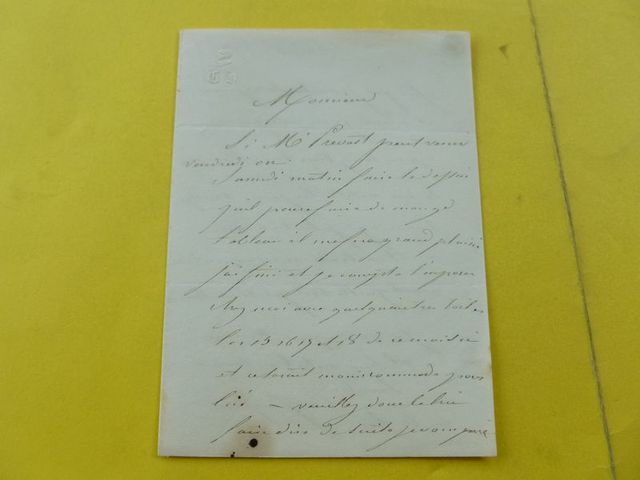 Monsieur
Si Mr Prevost peut venir
vendredi ou
Samedi matin faire le dessin
qu'il pense faire de mon gd
tableau il me fera grand plaisir
j'ai fini et je compte l'exposer
chez moi avec quelqu'autres toiles
les 15 16 17 et 18 de ce mois ci
et ce serait moins commode pour
lui – veuillez donc le lui
faire dire de suite je vous prie